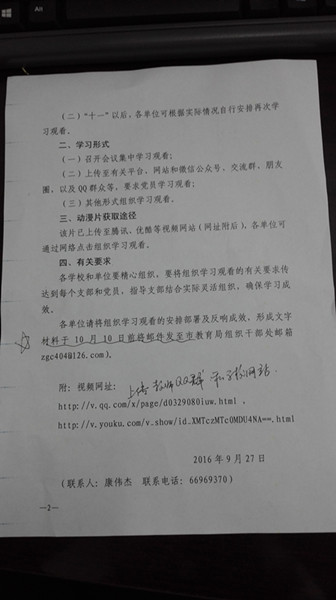 Alt
（二）“十一”以后，各单位可根据实际情况自行安排再次学
习观看。
二、学习形式
（一）召开会议集中学习观看；
（二）上传至有关平台、网站和微信公众号、交流群、朋友
圈，以及QQ群众等，要求党员学习观看；
（三）其他形式组织学习观看。
三、动漫片获取途径
该片已上传至腾讯、优酷等视频网站（网址附后），各单位可
通过网络点击组织学习观看。
四、有关要求
各学校和单位要精心组织，要将组织学习观看的有关要求传
达到每个支部和党员，指导支部结合实际灵活组织，确保学习成
效。
各单位请将组织学习观看的安排部署及反响成效，形成文字
材料于10月10日前将邮件发至市教育局组织干部处邮箱
zgc404@126.com）。
附：视频网址：
上传教师QQ群和学校网站
http://v.qq.com/x/page/d0329080iuw.html，
http://v.youku.com/v.show/id.XMTczMTc0MDU4NA==.html
2016年9月27日
（联系人：康伟杰 联系电话：66969370）
—2—